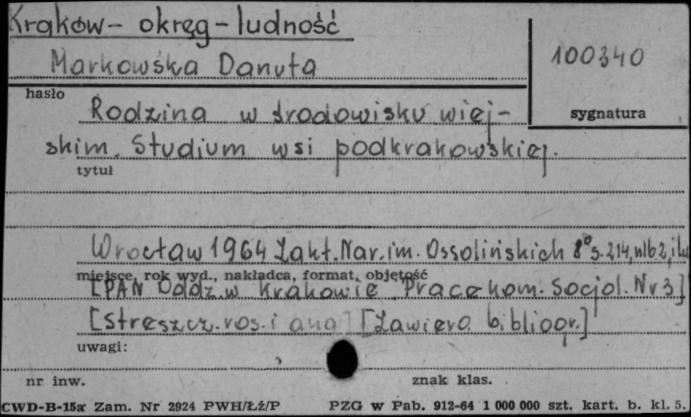 Kraków - okręg - ludność
Markowska Danuta
100340
hasło
sygnatura
Rodzina w środowisku wiej-
skim. Studium wsi podkrakowskiej.
tytuł
Wrocław 1964 Zakł. Nar. im. Ossolińskich 8° s. 214, nlb 2, il.
miejsce, rok wyd., nakładca, format, objętość
[PAN Oddz. w Krakowie. Prace Kom. Socjol. Nr 3]
[Streszcz. ros. i ang.] [Zawiera bibliogr.]
uwagi:
nr inw.
znak klas.
CWD-B-15a Zam. Nr 2924 PWH/Łź/P
PZG w Pab. 912-64 1 000 000 szt. kart. b. kl. 5.